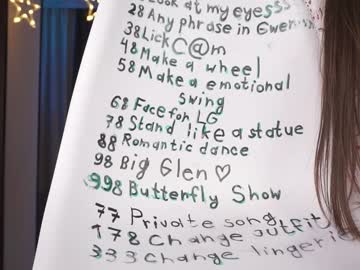 Look at my eyesss
28 Any phrase in Ewenish
38 Lick C@m
48 Make a wheel
58 Make a emotional
swing
68 Face for LG
78 Stand like a statue
88 Romantic dance
98 Big Glen ♡
998 Butterfly Show
77 Private song
178 Change outfit
333 Change lingeri